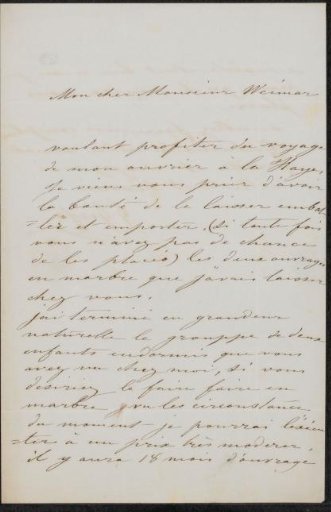 Mon cher Monsieur Weimar
voulant profiter du voyage
de mon ouvrier à la Haye,
Je viens vous prier d'avoir
la bonté de le laisser embal
=ler et emporter, (si toute fois
vous n'avez pas de chance
de les placer) les deux ouvrages
en marbre que j'avais laisser
chez vous.
j'ai terminé en grandeur
naturelle le grouppe de deux
enfants endormis que vous
avez vu chez moi, si vous
desiriez le faire faire en
marbre, vu les circonstances
du moment je pourrai l'exécu
=ter à un prix très moderer,
il y aura 18 mois d'ouvrage